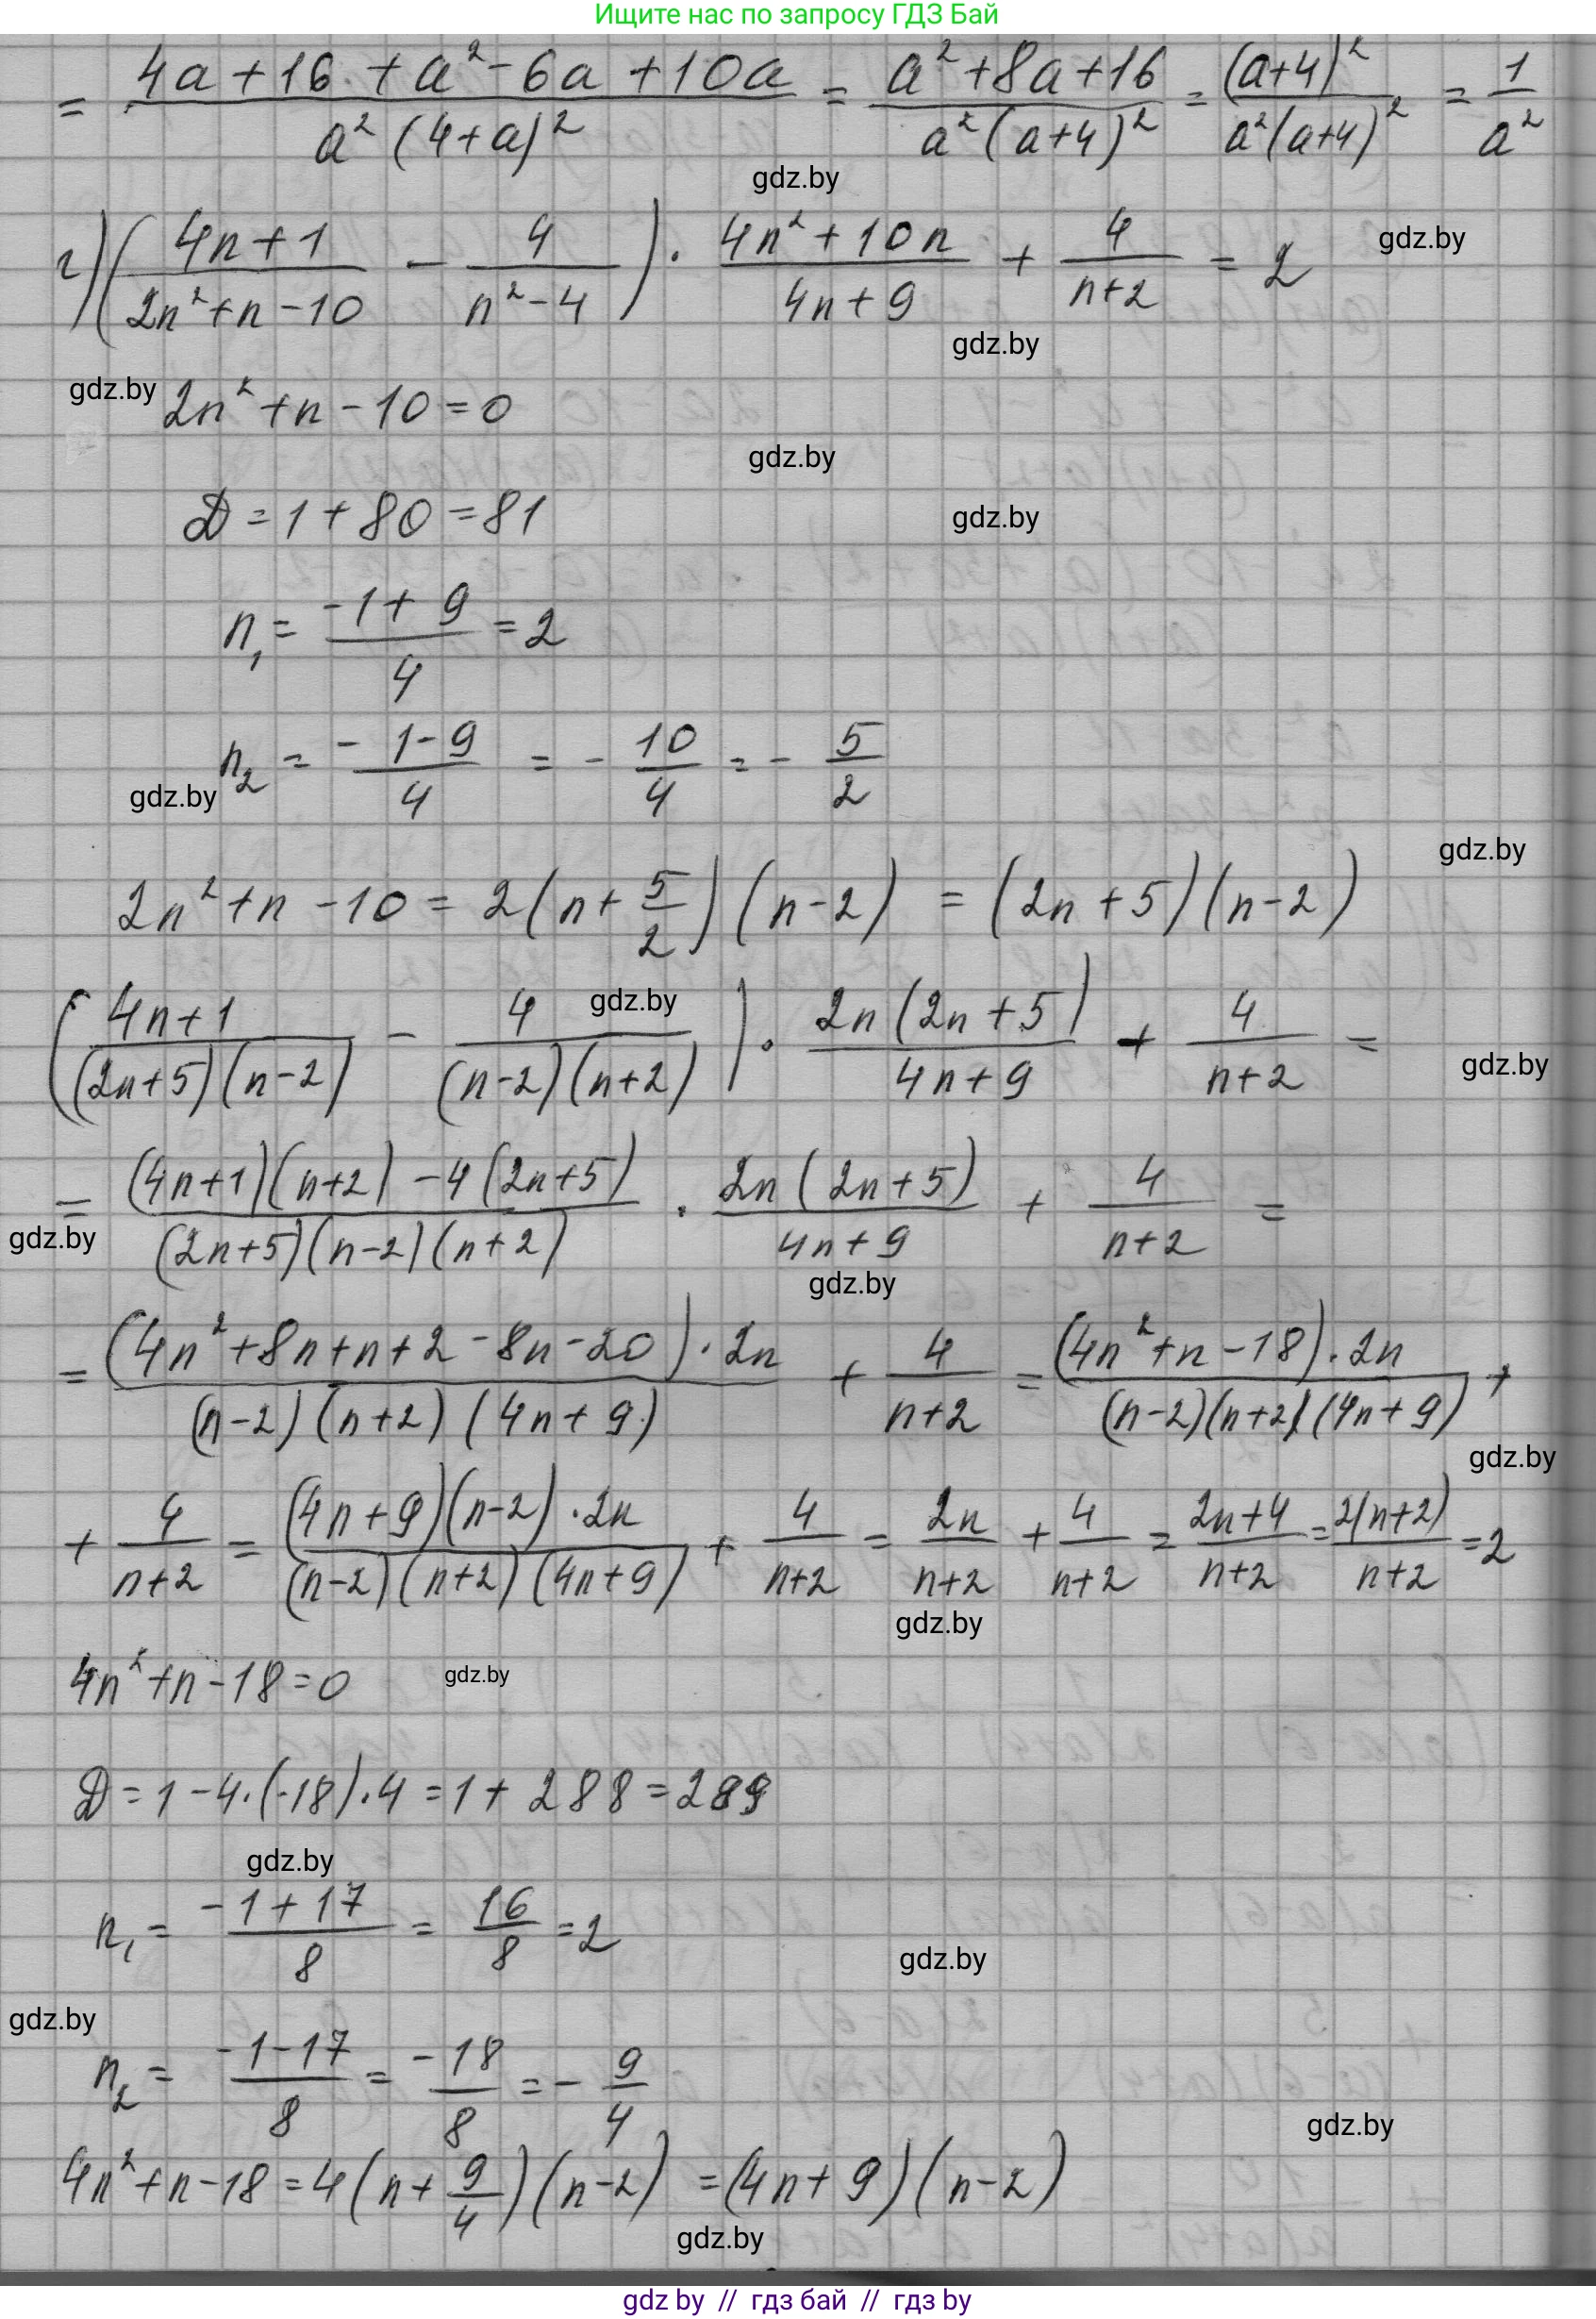 Ищите нас по запросу ГДЗ Бай
= (4a+16+a²-6a+10a)/(a²(4+a)²) = (a²+8a+16)/(a²(a+4)²) = (a+4)²/(a²(a+4)²) = 1/a²
gdz.by
г) ((4n+1)/(2n²+n-10) - 4/(n²-4)) · (4n²+10n)/(4n+9) + 4/(n+2) = 2
gdz.by
gdz.by
gdz.by
2n²+n-10=0
gdz.by
D=1+80=81
gdz.by
n₁ = (-1+9)/4 = 2
n₂ = (-1-9)/4 = -10/4 = -5/2
gdz.by
gdz.by
2n²+n-10 = 2(n+5/2)(n-2) = (2n+5)(n-2)
gdz.by
((4n+1)/((2n+5)(n-2)) - 4/((n-2)(n+2))) · 2n(2n+5)/(4n+9) + 4/(n+2) =
gdz.by
= ((4n+1)(n+2)-4(2n+5))/((2n+5)(n-2)(n+2)) · 2n(2n+5)/(4n+9) + 4/(n+2) =
gdz.by
gdz.by
= ((4n²+8n+n+2-8n-20)·2n)/((n-2)(n+2)(4n+9)) + 4/(n+2) = ((4n²+n-18)·2n)/((n-2)(n+2)(4n+9)) +
gdz.by
+ 4/(n+2) = ((4n+9)(n-2)·2n)/((n-2)(n+2)(4n+9)) + 4/(n+2) = 2n/(n+2) + 4/(n+2) = (2n+4)/(n+2) = 2(n+2)/(n+2) = 2
gdz.by
4n²+n-18=0
gdz.by
D=1-4·(-18)·4=1+288=289
gdz.by
n₁ = (-1+17)/8 = 16/8 = 2
gdz.by
gdz.by
n₂ = (-1-17)/8 = -18/8 = -9/4
gdz.by
4n²+n-18=4(n+9/4)(n-2) =(4n+9)(n-2)
gdz.by
gdz by // гдз бай // гдз by